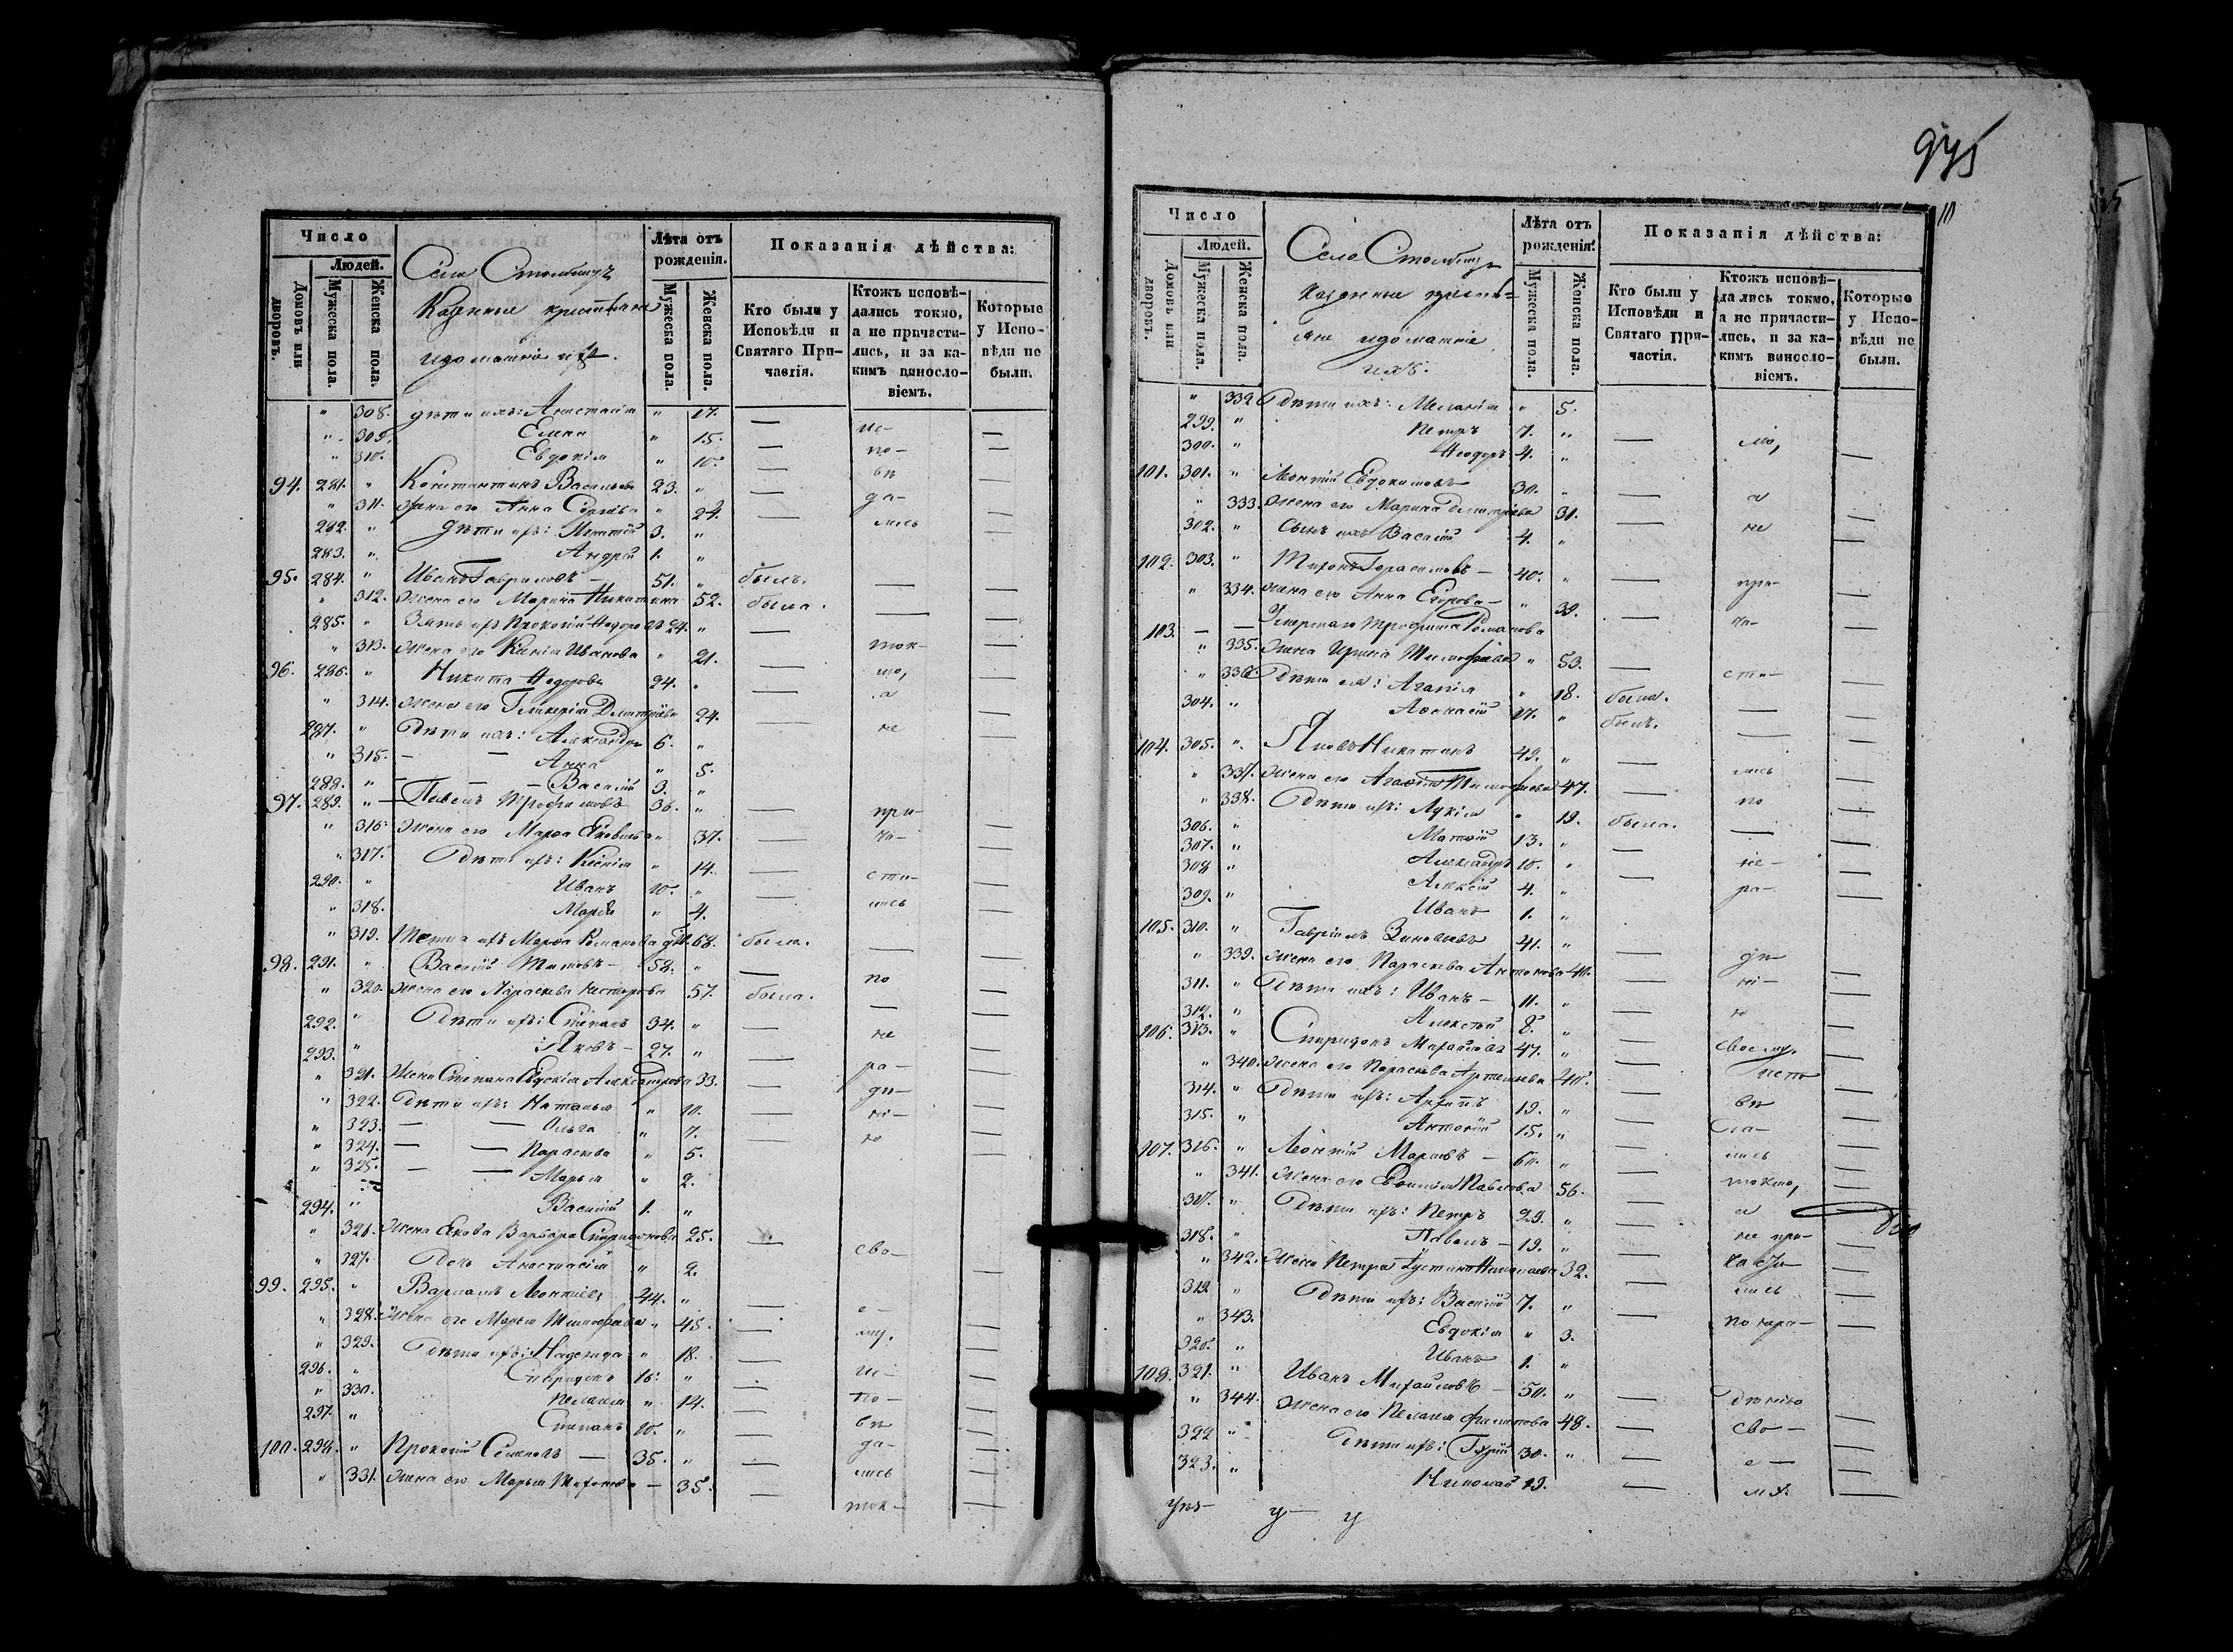 975
Число
Людей.
Домовъ или дворовъ.
Мужеска пола.
Женска пола.
Казенные крестьяне
и домашніе ихъ.
Лѣта отъ рожденія.
Мужеска пола.
Женска пола.
Показанія дѣйства:
Кто были у Исповѣди и Святаго Причастія.
Ктожъ исповѣдались токмо, а не причастились, и за какимъ винословіемъ.
Которые у Исповѣди не были.
" 308. дѣти ихъ: Анастасія " 17. — ис- —
" 309. Елена " 15. — по- —
" 310. Евдокія " 10. — вѣ —
94. 281. " Константинъ Васильевъ 23. " — да- —
" 311. Жена его Анна " 24. — лись —
282. " Дѣти ихъ: 3. "
283. " Андрей 1. "
95. 284. " Иванъ Гавриловъ — 51. " былъ. — —
" 312. Жена его Марина Никитина 52. была. — —
285. " Зять ихъ Прокопій Ѳедоровъ 24. " — ток- —
" 313. Жена его Ксенія Иванова " 21. — мо, —
96. 286. " Никита Ѳедоровъ 24. " — а —
" 314. Жена его Гликерія Димитріева 24. — не —
287. " Дѣти ихъ: Александръ 6. "
" 315. — — Анна " 5.
288. " — — Василій 3. "
97. 289. " — Павелъ Трофимовъ 36. " — при- —
" 316. Жена его Марѳа Яковлева " 37. — ча- —
" 317. Дѣти ихъ: Ксенія " 14. — сти- —
290. " Иванъ 10. " — лись —
" 318. Марѳа " 4.
" 319. Тетка ихъ Марѳа Романова 68. была. — —
98. 291. " Василій Титовъ — 58. " — по —
" 320. Жена его Параскева Нестерова 57. была. — —
292. " Дѣти ихъ: Степанъ 34. " — не —
293. " Яковъ — 27. " — ра- —
" 321. Жена Степана Евдокія Александрова 33. — дѣ- —
" 322. Дѣти ихъ: Наталья " 10. — ні- —
" 323. — — Ольга " 7. — ю —
" 324. — — Параскева " 5.
" 325. — — Марья " 2.
294. " Василій 1. "
" 326. Жена Якова Варвара Спиридонова 25. — сво- —
" 327. Дочь Анастасія " 2.
99. 295. " Варлаамъ Леонтіевъ 44. " — е- —
" 328. Жена его Марья Тимоѳеева " 45. — му. —
" 329. Дѣти ихъ: Надежда " 18. — ис- —
296. " Спиридонъ 16. " — по- —
" 330. Пелагія " 14. — вѣ —
297. " Степанъ 10. " — да- —
100. 298. " Прокопій Семеновъ — 35. " — лись —
" 331. Жена его Марья Тихонова — 35. — ток- —
Число
Людей.
Домовъ или дворовъ.
Мужеска пола.
Женска пола.
Казенные крестья=
яне и домашніе
ихъ.
Лѣта отъ рожденія.
Мужеска пола.
Женска пола.
Показанія дѣйства:
Кто были у Исповѣди и Святаго Причастія.
Ктожъ исповѣдались токмо, а не причастились, и за какимъ винословіемъ.
Которые у Исповѣди не были.
" 332. Дѣти ихъ: Меланія " 5.
299. " Петръ 7. " — мо, —
300. " Ѳеодоръ 4. "
101. 301. " Леонтій Евдокимовъ 30. " — а —
" 333. Жена его Марина Димитріева 31. — не —
302. " Сынъ ихъ Василій 4. "
102. 303. " Тихонъ Герасимовъ — 40. " — при- —
" 334. Жена его Анна Егорова — " 39. — ча- —
103. — — Умершаго Трофима Романова
" 335. Жена Ирина Тимоѳеева " 53. — сти- —
" 336. Дѣти ея: Агапія " 18. была. — —
304. " Аѳанасій 17. " былъ. — —
104. 305. " Яковъ Никитинъ 49. " — лись —
" 337. Жена его Агаѳія Тимоѳеева 47. — по —
" 338. Дѣти ихъ: Лукія " 19. была. — —
306. " Матѳій 13. " — не- —
307. " Александръ 10. " — ра- —
308. " Алексій 4. "
309. " Иванъ 1. "
105. 310. " Гавріилъ Зиновьевъ 41. " — дѣ- —
" 339. Жена его Параскева Антонова 40. — ні- —
311. " Дѣти ихъ: Иванъ — 11. " — ю —
312. " Алексѣй 8. "
106. 313. " Спиридонъ Михайловъ 47. " — своему. —
" 340. Жена его Параскева Артемьева 40. — испо —
314. " Дѣти ихъ: Архипъ 19. " — вѣ —
315. " Антоній 15. " — да- —
107. 316. " Леонтій Марковъ — 60. " — лись —
" 341. Жена его Евѳимія Павлова 56. — токмо, —
317. " Дѣти ихъ: Петръ 29. " — а —
318. " Павелъ — 19. " — не при- —
" 342. Жена Петра Іустина Николаева 32. — части- —
319. " Дѣти ихъ: Василій 7. " — лись —
" 343. Евдокія " 3. — по нера- —
320. " Иванъ 1. "
108. 321. " Иванъ Михайловъ — 50. " — дѣнію —
" 344. Жена его Пелагія Филипова 48. — сво- —
322. " Дѣти ихъ: Гурій 30. " — е- —
323. " Николай 19. — му. —